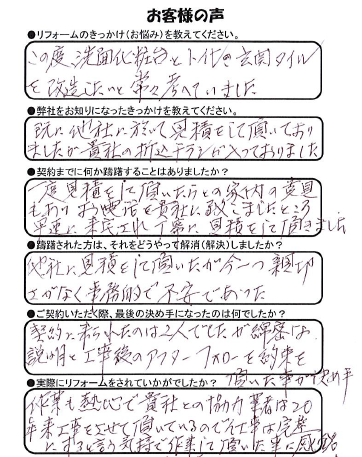 お客様の声
●リフォームのきっかけ（お悩み）を教えてください。
この度、洗面化粧台とトイレ、玄関タイル
を改造したいと常々考へていました
●弊社をお知りになったきっかけを教えてください。
既に他社に於て見積をして頂いており
ましたが貴社の折込チラシが入っておりました
●契約までに何か躊躇することはありましたか？
一度見積をして頂いたらとの家内の意見
もありお電話を貴社に致しましたところ
早速に来宅され丁寧に見積をして頂きました
●躊躇された方は、それをどうやって解消（解決）しましたか？
他社に見積をして頂いたが今一つ親切
さがなく事務的で不安であった
●ご契約いただく際、最後の決め手になったのは何でしたか？
契約に来られたのは2人でしたが綿密な
説明と工事後のアフターフォローを約束を
頂いた事が決め手
●実際にリフォームをされていかがでしたか？
作業も熱心で貴社との協力業者は20
年来工事をさせて頂いているので仕事は完璧
にすると言う気持で作業して頂いた事に感銘